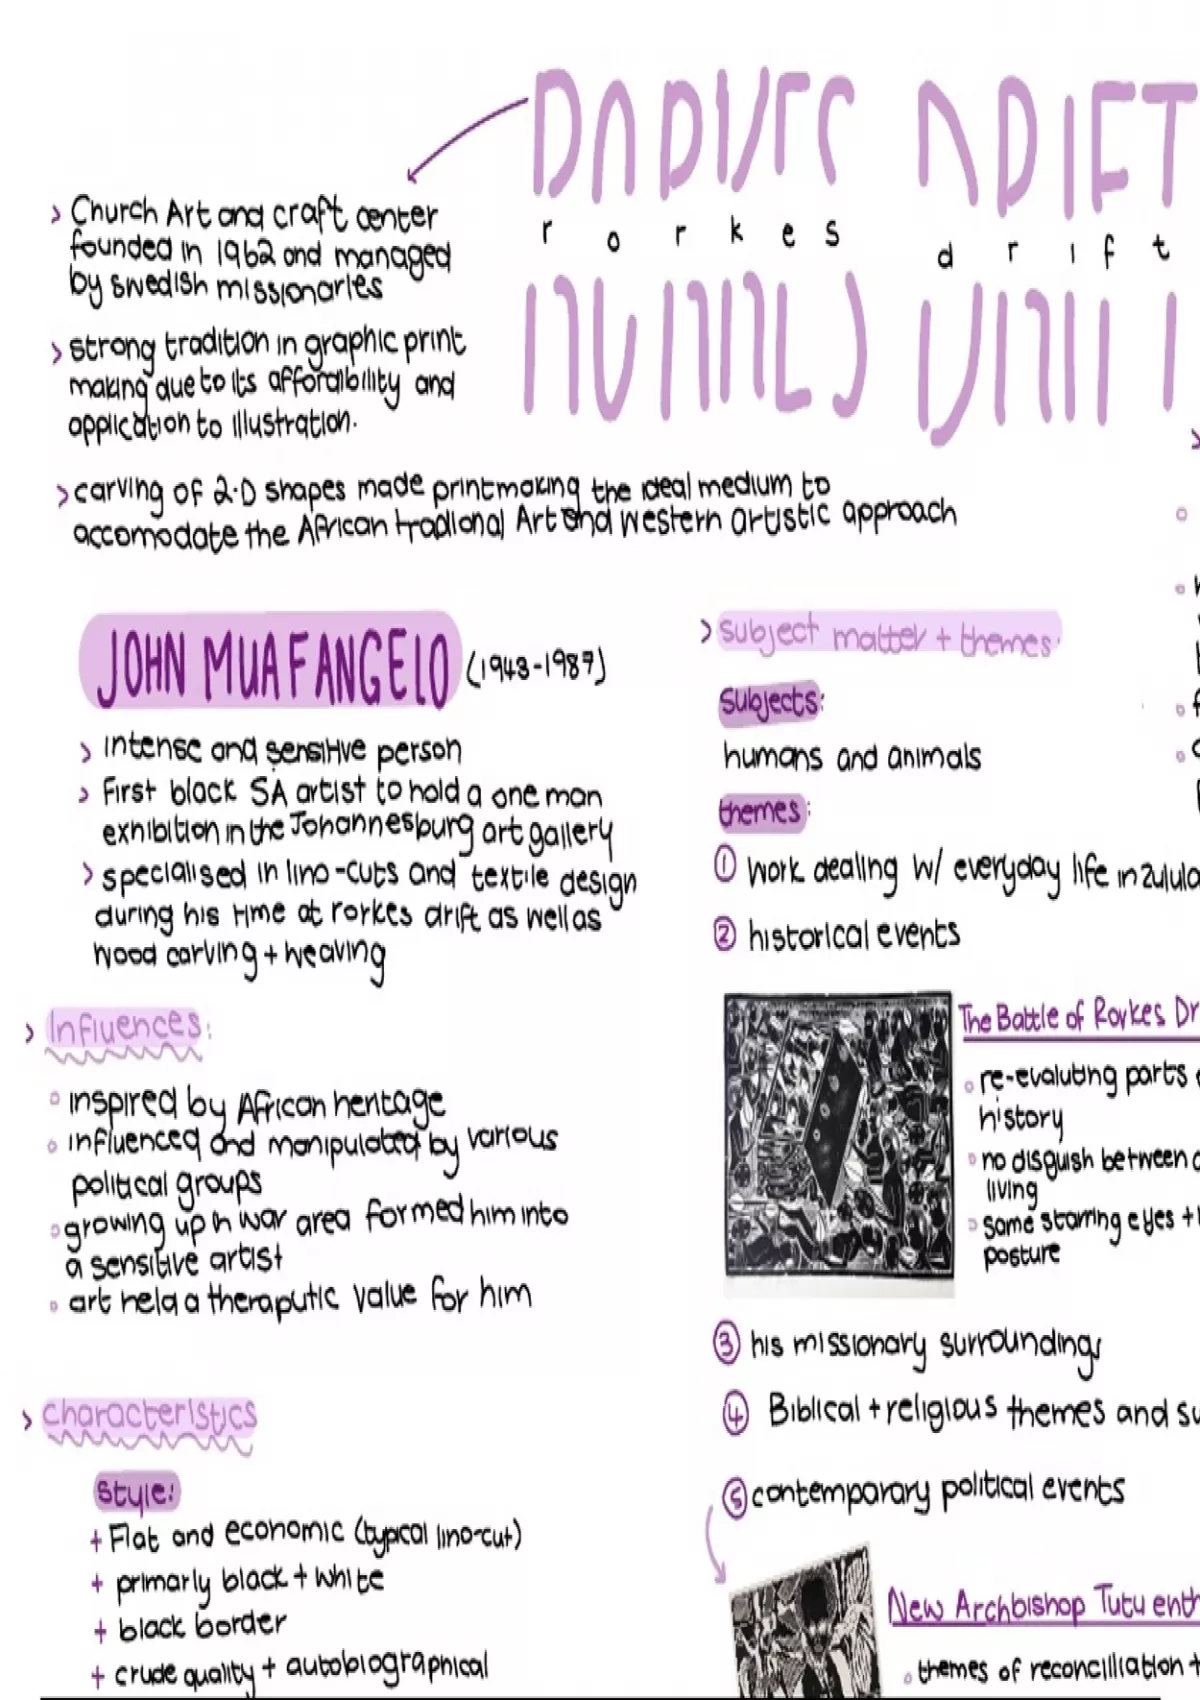 rorkes drift
> Church Art and craft center
founded in 1962 and managed
by swedish missionaries
> strong tradition in graphic print
making due to its affordibility and
application to illustration.
> carving of 2-D shapes made printmaking the ideal medium to
accomodate the African tradional Art and western artistic approach
JOHN MUAFANGELO (1943-1987)
> intense and sensitive person
> First black SA artist to hold a one man
exhibition in the Johannesburg art gallery
> specialised in lino-cuts and textile design
during his time at rorkes drift as well as
wood carving + weaving
> Influences:
◦ inspired by African heritage
◦ influenced and manipulated by various
political groups
◦ growing up in war area formed him into
a sensitive artist
◦ art held a theraputic value for him
> characteristics
Style:
+ Flat and economic (typical lino-cut)
+ primarly black + white
+ black border
+ crude quality + autobiographical
> subject matter + themes:
Subjects:
humans and animals
themes:
① work dealing w/ everyday life in zulula
② historical events
The Battle of Rorkes Dr
◦ re-evaluting parts
history
◦ no disguish between
living
◦ same starring eyes +
posture
③ his missionary surroundings
④ Biblical + religious themes and su
⑤ contemporary political events
New Archbishop Tutu enth
◦ themes of reconcilliation +